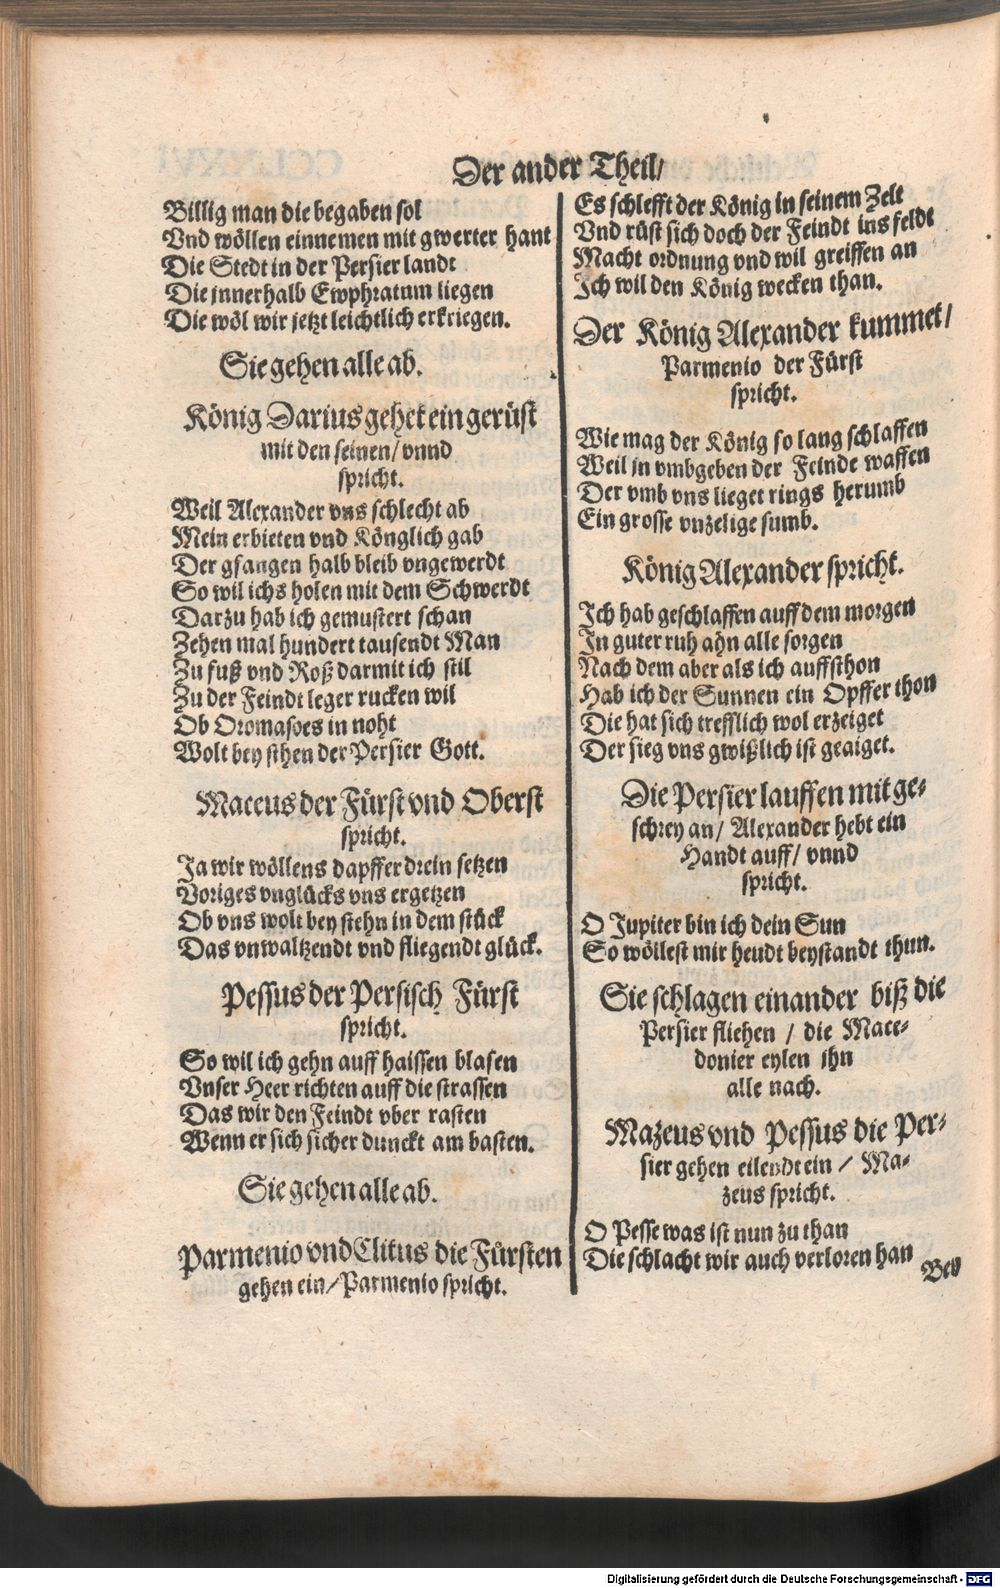 Der ander Theil/
Billig man die begaben sol
Vnd wöllen einnemen mit gwerter hant
Die Stedt in der Persier landt
Die jnnerhalb Ewphratum liegen
Die wöl wir jetzt leichtlich erkriegen.
Sie gehen alle ab.
König Darius gehet ein gerüst
mit den seinen/ vnnd
spricht.
Weil Alexander vns schlecht ab
Mein erbieten vnd Könglich gab
Der gfangen halb bleib vngewerdt
So wil ichs holen mit dem Schwerdt
Darzu hab ich gemustert schan
Zehen mal hundert tausendt Man
Zu fuß vnd Roß darmit ich stil
Zu der Feindt leger rucken wil
Ob Oromasdes in noht
Wolt bey sthen der Persier Gott.
Maceus der Fürst vnd Oberst
spricht.
Ja wir wöllens dapffer drein setzen
Voriges vnglücks vns ergetzen
Ob vns wolt bey stehn in dem stück
Das vnwaltzendt vnd fliegendt glück.
Pessus der Persisch Fürst
spricht.
So wil ich gehn auff haissen blasen
Vnser Heer richten auff die strassen
Das wir den Feindt vber rasten
Wenn er sich sicher dunckt am basten.
Sie gehen alle ab.
Parmenio vnd Clitus die Fürsten
gehen ein/ Parmenio spricht.
Es schlefft der König in seinem Zelt
Vnd rüst sich doch der Feindt ins feldt
Macht ordnung vnd wil greiffen an
Ich wil den König wecken than.
Der König Alexander kummet/
Parmenio der Fürst
spricht.
Wie mag der König so lang schlaffen
Weil jn vmbgeben der Feinde waffen
Der vmb vns lieget rings herumb
Ein grosse vnzelige sumb.
König Alexander spricht.
Ich hab geschlaffen auff dem morgen
In guter ruh ahn alle sorgen
Nach dem aber als ich auffsthon
Hab ich der Sunnen ein Opffer thon
Die hat sich trefflich wol erzeiget
Der sieg vns gwißlich ist geaiget.
Die Persier lauffen mit ge-
schrey an/ Alexander hebt ein
Handt auff/ vnnd
spricht.
O Jupiter bin ich dein Sun
So wöllest mir heudt beystandt thun.
Sie schlagen einander biß die
Persier fliehen / die Mace-
donier eylen ihn
alle nach.
Mazeus vnd Pessus die Per-
sier gehen eilendt ein / Ma-
zeus spricht.
O Pesse was ist nun zu than
Die schlacht wir auch verloren han
Digitalisierung gefördert durch die Deutsche Forschungsgemeinschaft - DFG